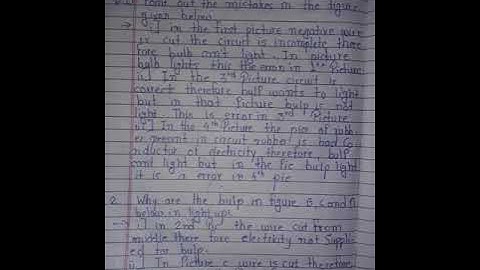 come out the mistakes in the figure
given below.
→ i] in the first picture negative wire
is cut the circuit is incomplete there
fore bulb can't light. In picture
bulb lights this the error in 1st Picture.
ii] In the 3rd Picture circuit is
correct therefore bulf wants to light
but in that Picture bulp is not
light. This is error in 3rd Picture
iii] In the 4th Picture the pice of rubb
er present in circuit rubber is bad Co
nductor of electricity therefore bulp
cant light but in the Pic bulp light
it is a error in 4th pic
2. Why are the bulp in figure B, C and
below in light ups
→ i] in 2nd the wire cut from
middle there fore electrikity not Supplie
ed for bulp.
ii] In Picture c wire is cut therefore